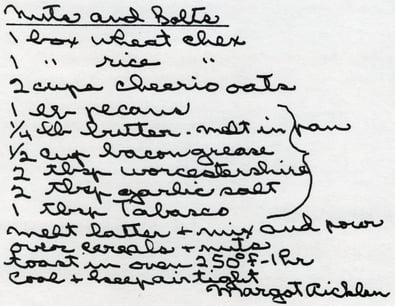 Nuts and Bolts
1 box wheat chex
1 " rice "
2 cups cheerio oats
1 lb pecans
1/4 lb butter - melt in pan
1/2 cup bacon grease
2 tbsp worcestershire
2 tbsp garlic salt
1 tbsp Tabasco
melt latter + mix and pour
over cereals + nuts
toast in oven 250°F - 1 hr
Cool + keep airtight
Margot Ricklen